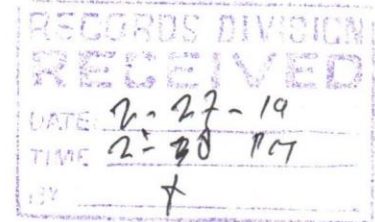 RECORDS DIVISION
RECEIVED
DATE: 2-27-19
TIME 2:30 PM
BY X